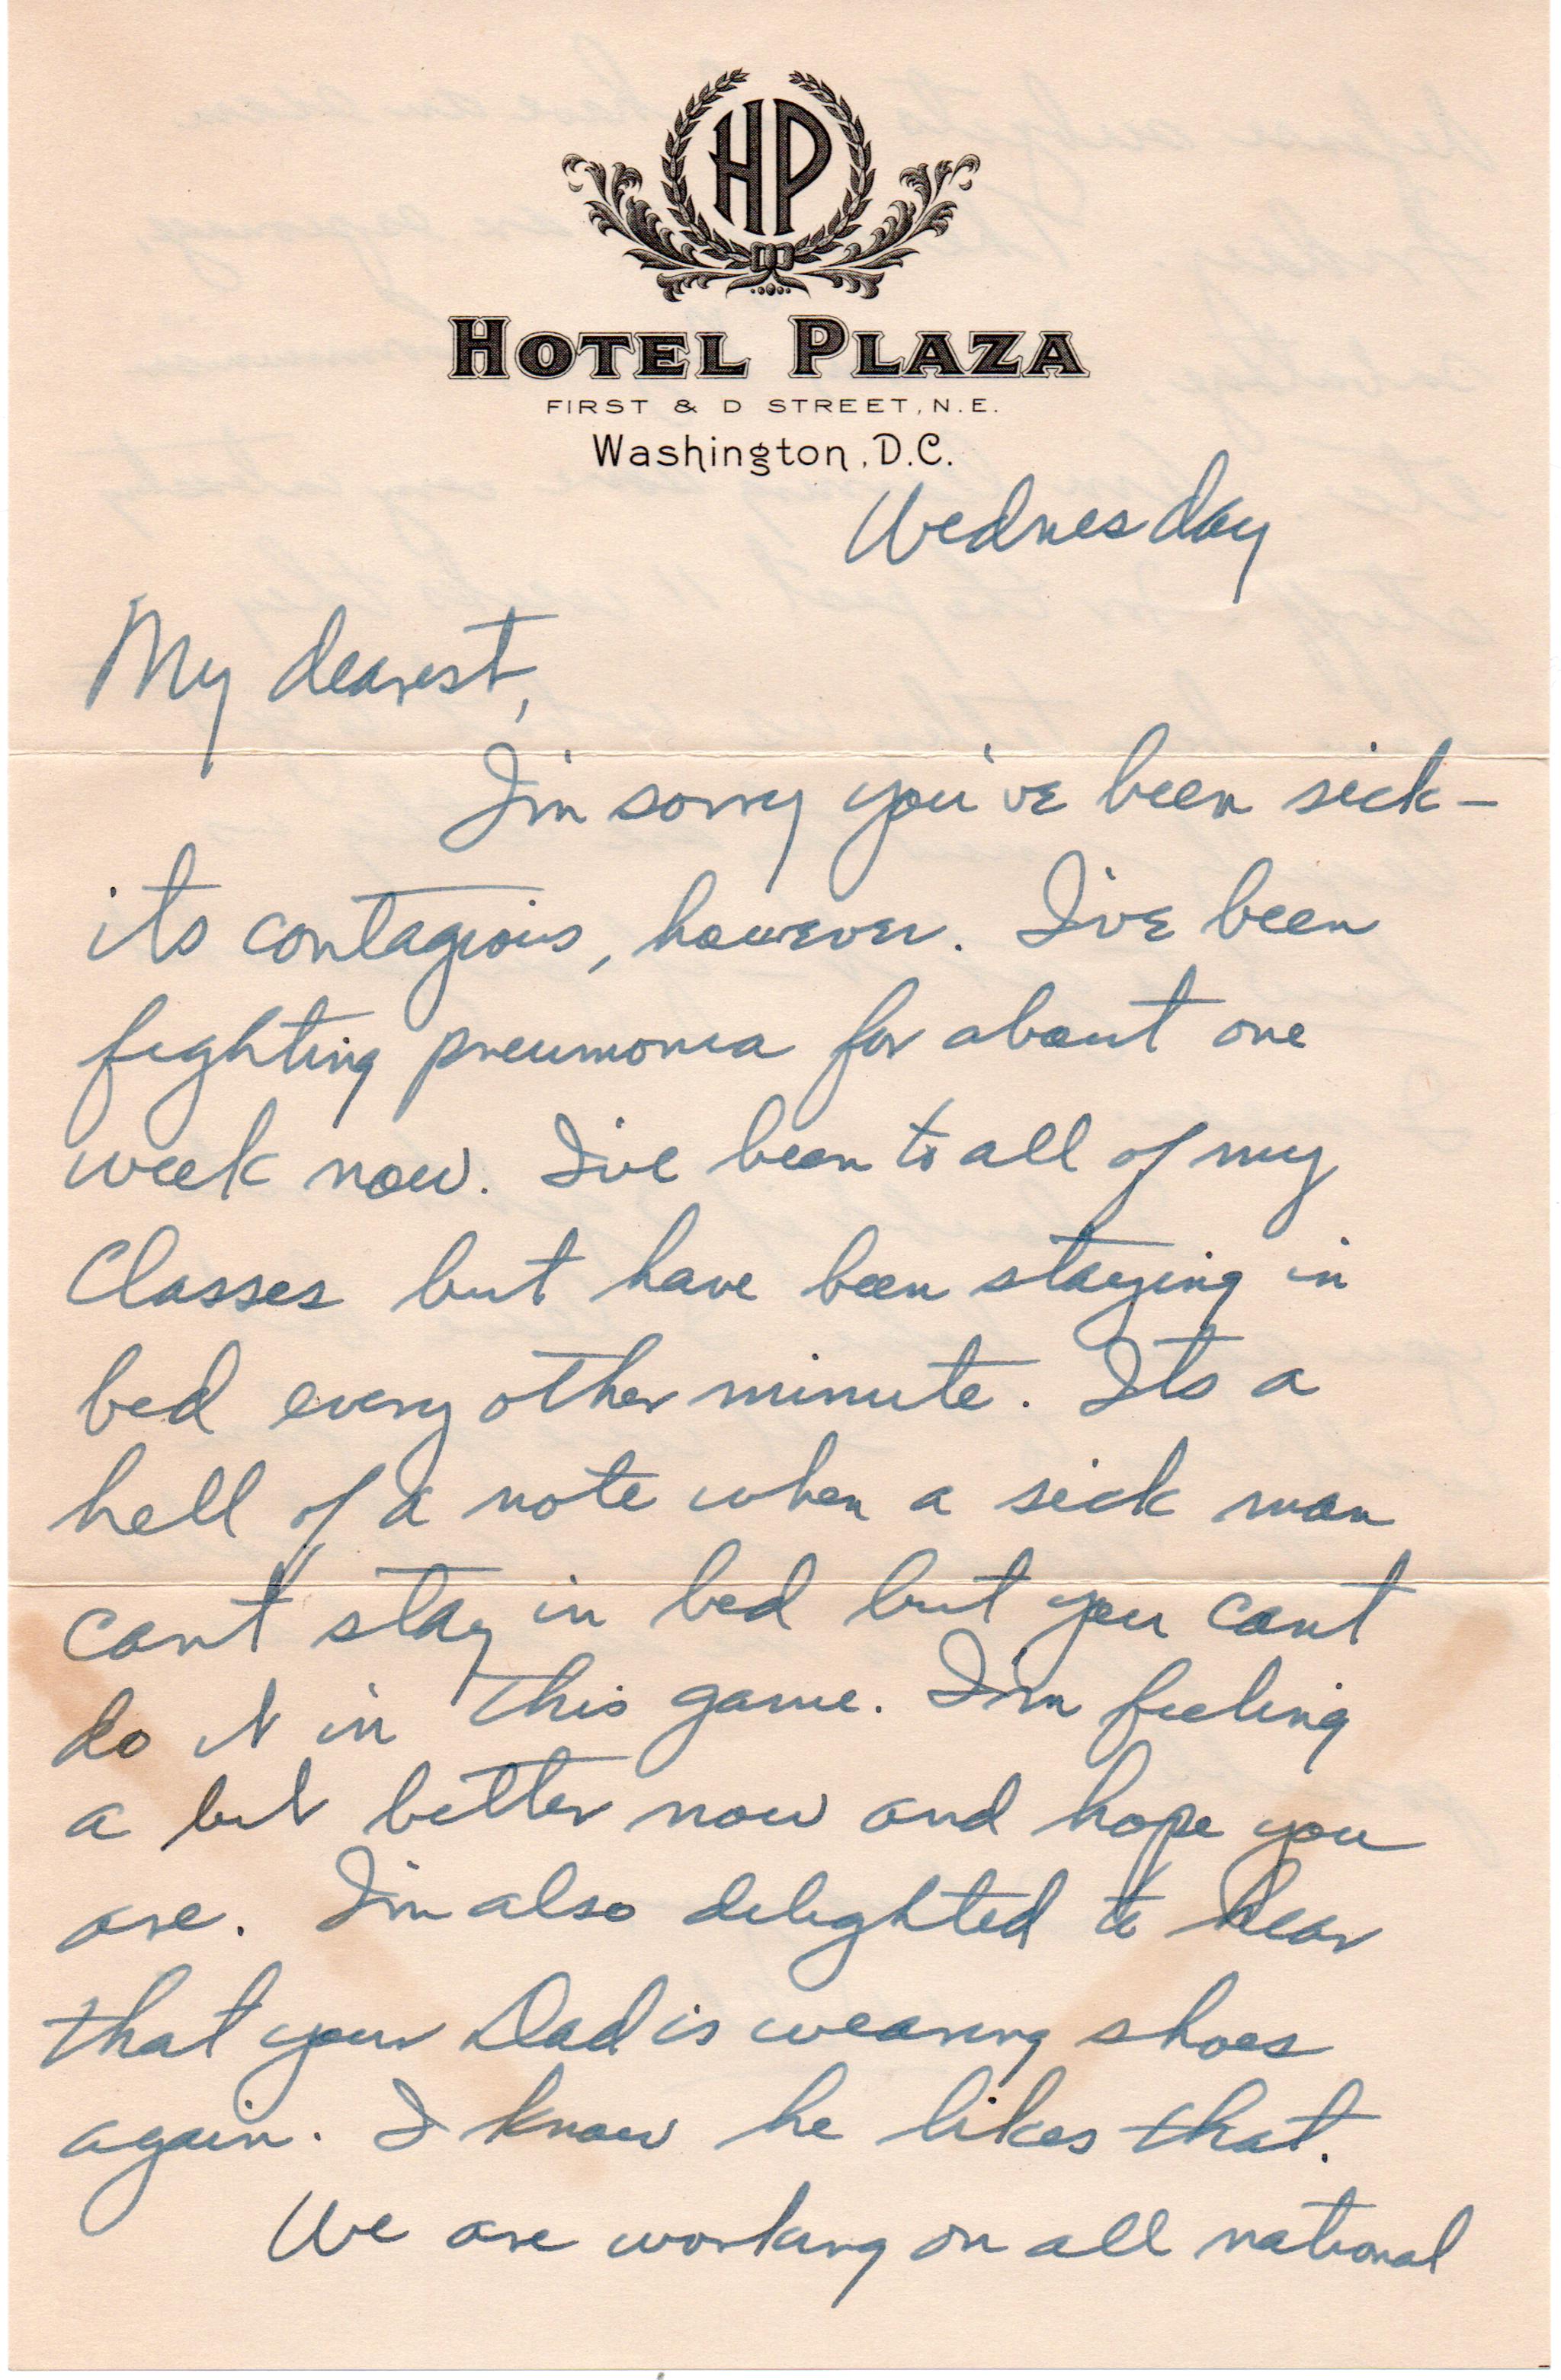 HP
HOTEL PLAZA
FIRST & D STREET, N.E.
Washington, D.C.
Wednesday
My dearest,
I'm sorry you've been sick -
its contagious, however. I've been
fighting pneumonia for about one
week now. I've been to all of my
Classes but have been staying in
bed every other minute. Its a
hell of a note when a sick man
can't stay in bed but you cant
do it in this game. I'm feeling
a bit better now and hope you
are. I'm also delighted to hear
that your Dad is wearing shoes
again. I know he likes that.
We are working on all national